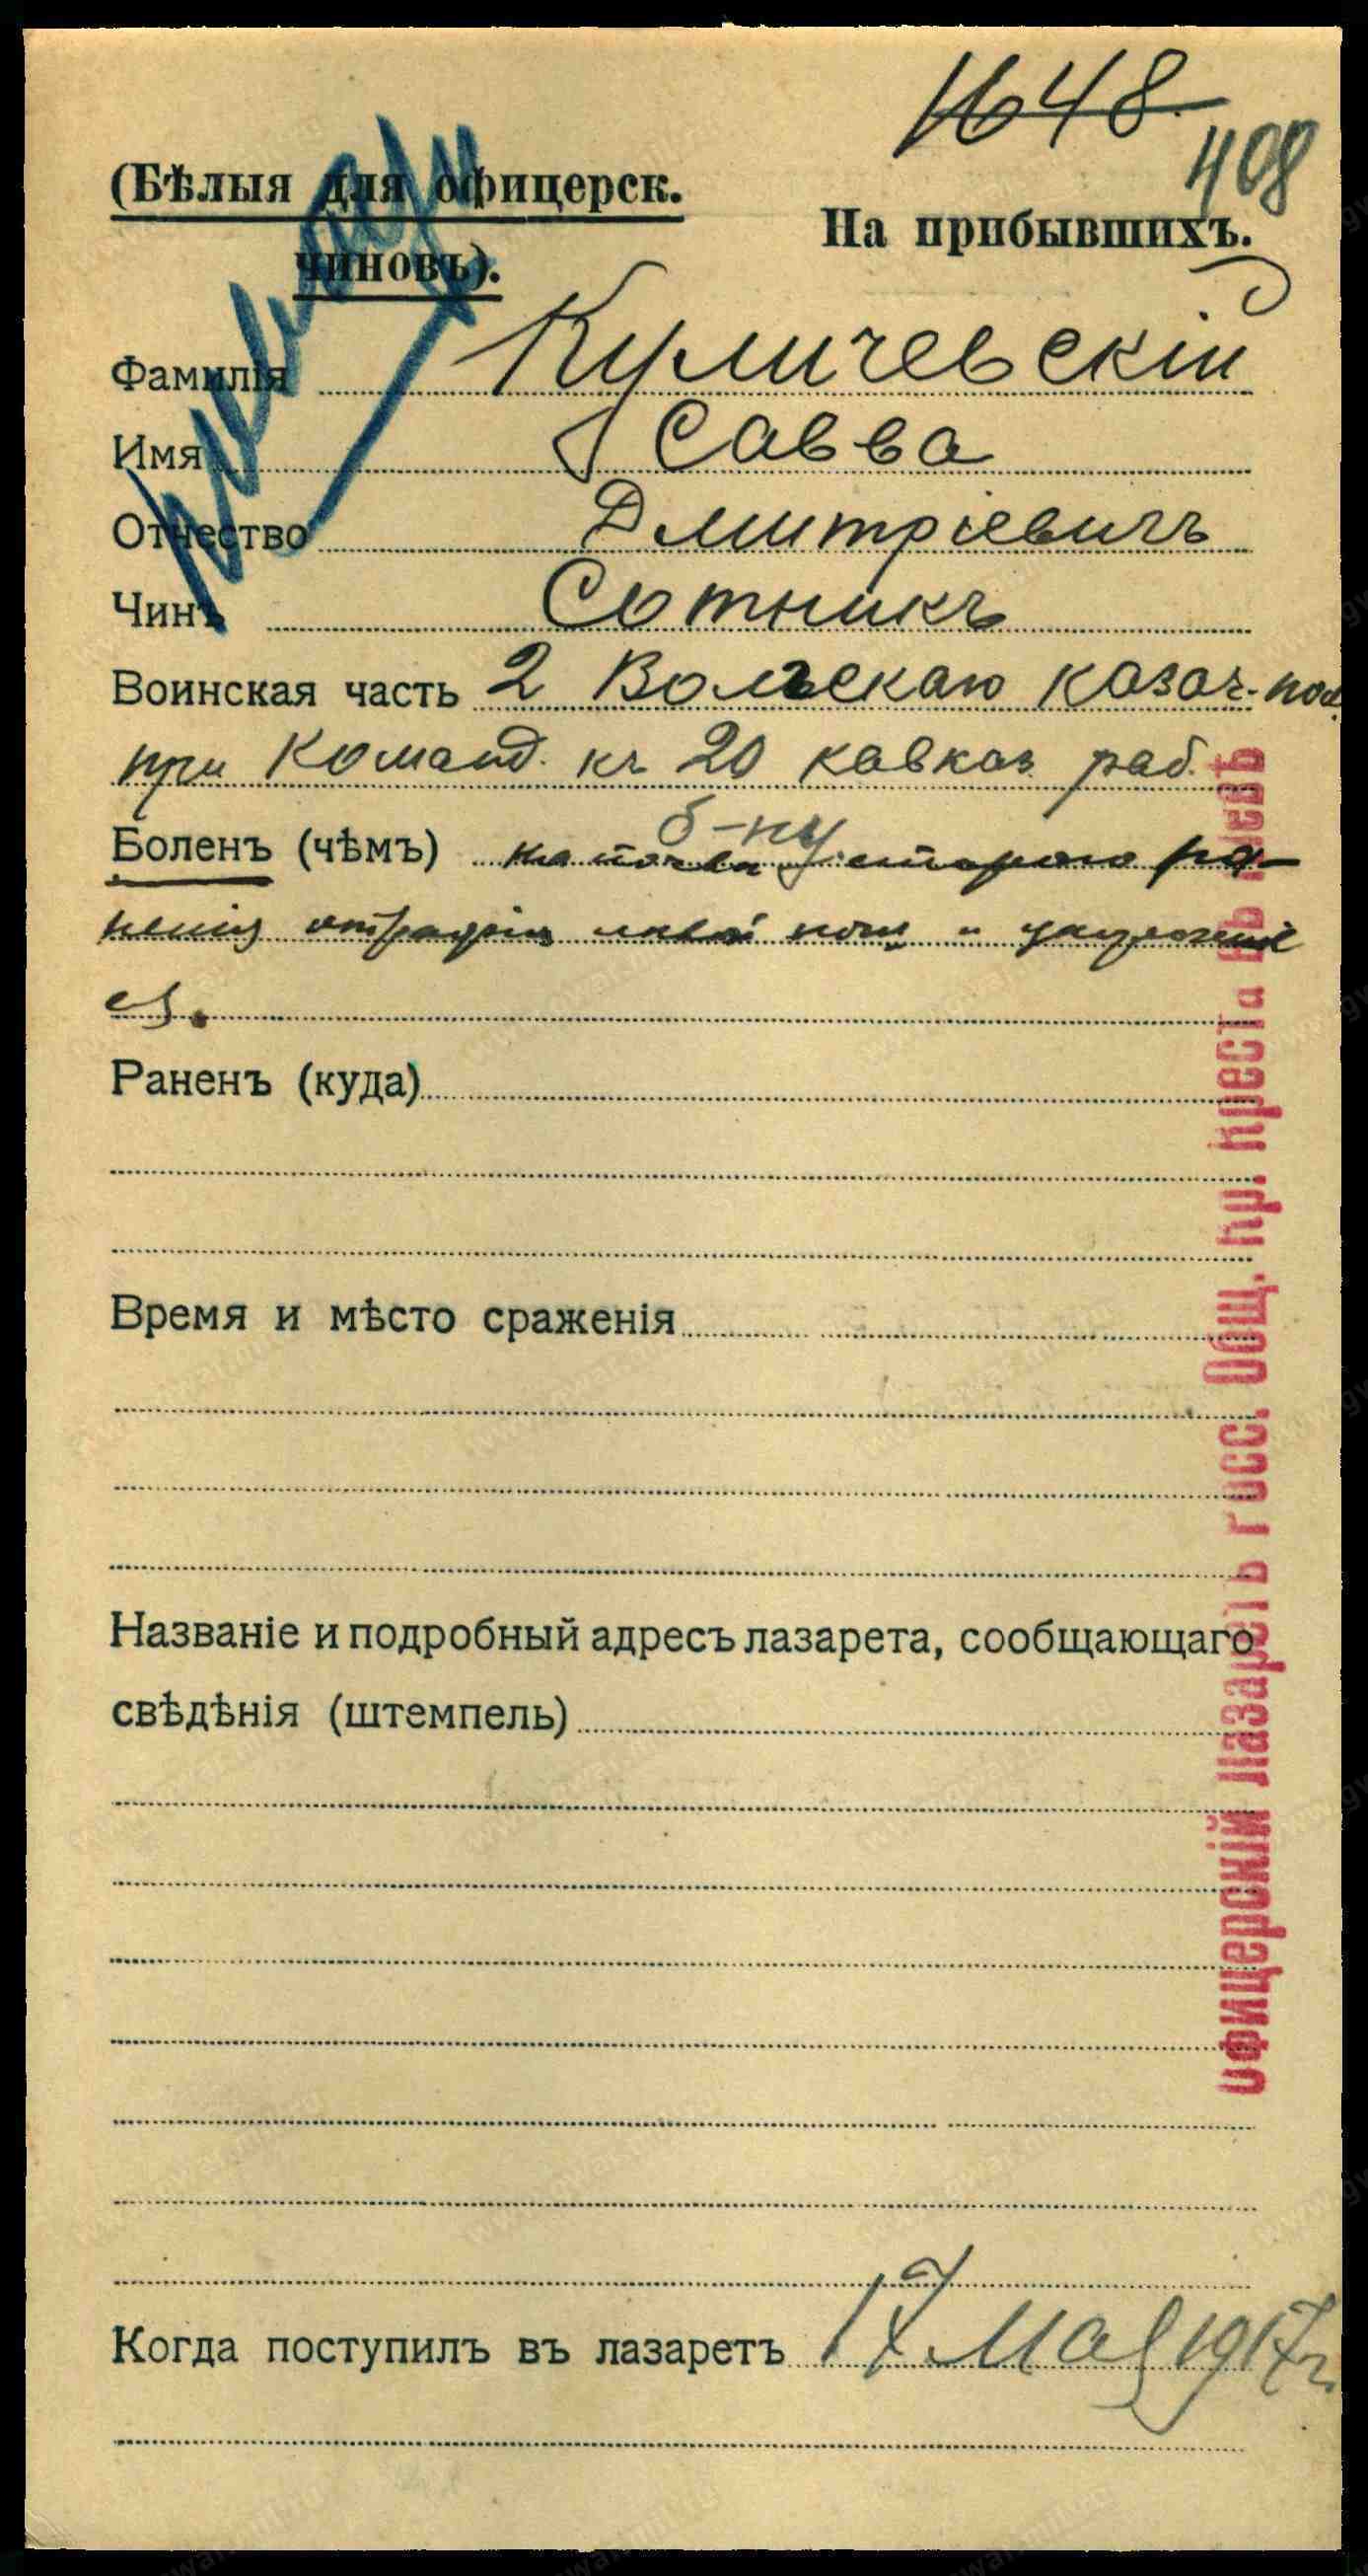 1648
408
(Бѣлыя для офицерск.
чиновъ).
На прибывшихъ.
Фамилія Куличевскій
Имя Савва
Отчество Дмитріевичъ
Чинъ Сотникъ
Воинская часть 2 Волгскаго казач. пол.
при Команд. къ 20 кавказ. раб.
б-ну
Боленъ (чѣмъ) на почвѣ стараго ра-
ненія атрофія левой ноги и
Раненъ (куда)
Время и мѣсто сраженія
Названіе и подробный адресъ лазарета, сообщающаго
свѣдѣнія (штемпель)
Когда поступилъ въ лазаретъ 17 мая 1917 г.
Офицерскій Лазаретъ Росс. Общ. Кр. Креста въ Кіевѣ